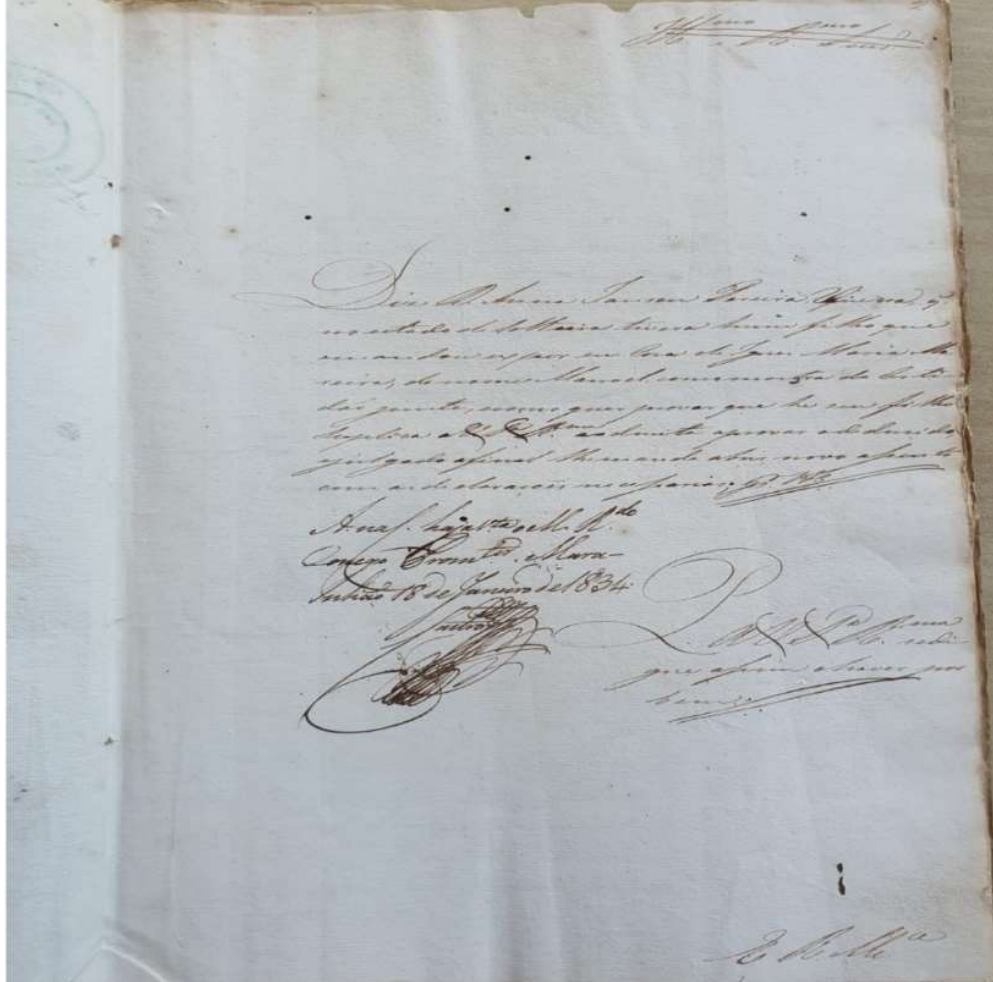 Illmo Rmo
Diz D. Anna Jansen Pereira Viuva, q
no estado de solteira tivera hum filho que
mandou expor em Casa de Maria Mo
reira, de nome Manoel como mostra da Certi
daõ junta, e como quer provar que he seu filho
Suplica a V. S. Rma admita a provar o deduzido
e julgado afinal lhe mande abrir novo assento
com as declaraçoes necessarias
A. na f. haja vta o M. R.do
Conego Promtor. Mara-
nhaõ 18 de Janeiro de 1834
P. a V. S. Rma
que assim o haver por
bem
E R Mce